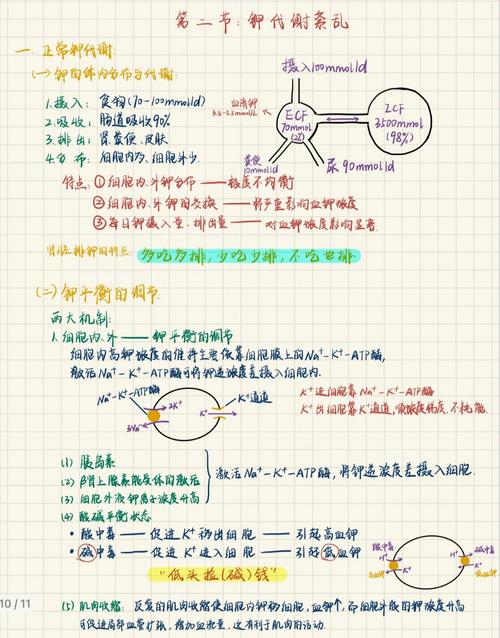 第二节：钾代谢紊乱
一. 正常钾代谢：
(一) 钾的体内分布与代谢：
摄入100mmol/d
1.摄入：食物(70-100mmol/d)
2.吸收：肠道吸收90%
3.排出：肾.粪便.皮肤
4.分布：细胞内多.细胞外少.
血清钾
3.5-5.5mmol/L
ECF
70mmol
(2%)
ICF
3500mmol
(98%)
粪便
10mmol/d
尿90mmol/d
特点：①细胞内、外钾分布——极度不均衡
②细胞内、外钾的交换——将严重影响血钾浓度
③每日钾摄入量、排出量——对血钾浓度影响显著.
肾脏排钾的特点：多吃多排，少吃少排，不吃也排
(二) 钾平衡的调节：
两大机制：
1.细胞内、外——钾平衡的调节
细胞内高钾浓度的维持主要依靠细胞膜上的Na⁺-K⁺-ATP酶，
激活Na⁺-K⁺-ATP酶可将钾逆浓度差摄入细胞内.
Na⁺-K⁺-ATP酶
2K⁺
3Na⁺
K⁺通道
K⁺
K⁺进细胞靠Na⁺-K⁺-ATP酶
K⁺出细胞靠K⁺通道，顺浓度梯度，不耗能.
(1) 胰岛素
(2) β肾上腺素能受体的激活
(3) 细胞外液钾离子浓度升高
激活Na⁺-K⁺-ATP酶，将钾逆浓度差摄入细胞.
(4) 酸碱平衡状态
• 酸中毒——促进K⁺移出细胞——引起高血钾
• 碱中毒——促进K⁺进入细胞——引起低血钾
“低头捡(碱)钱”
酸中毒
H⁺
K⁺
高血钾
碱中毒
H⁺
K⁺
低血钾
10 / 11
(5) 肌肉收缩：反复的肌肉收缩使细胞内钾移细胞，血钾↑，而细胞外液的钾浓度升高
可促进局部血管扩张，增加血流量，这有利于肌肉的活动.